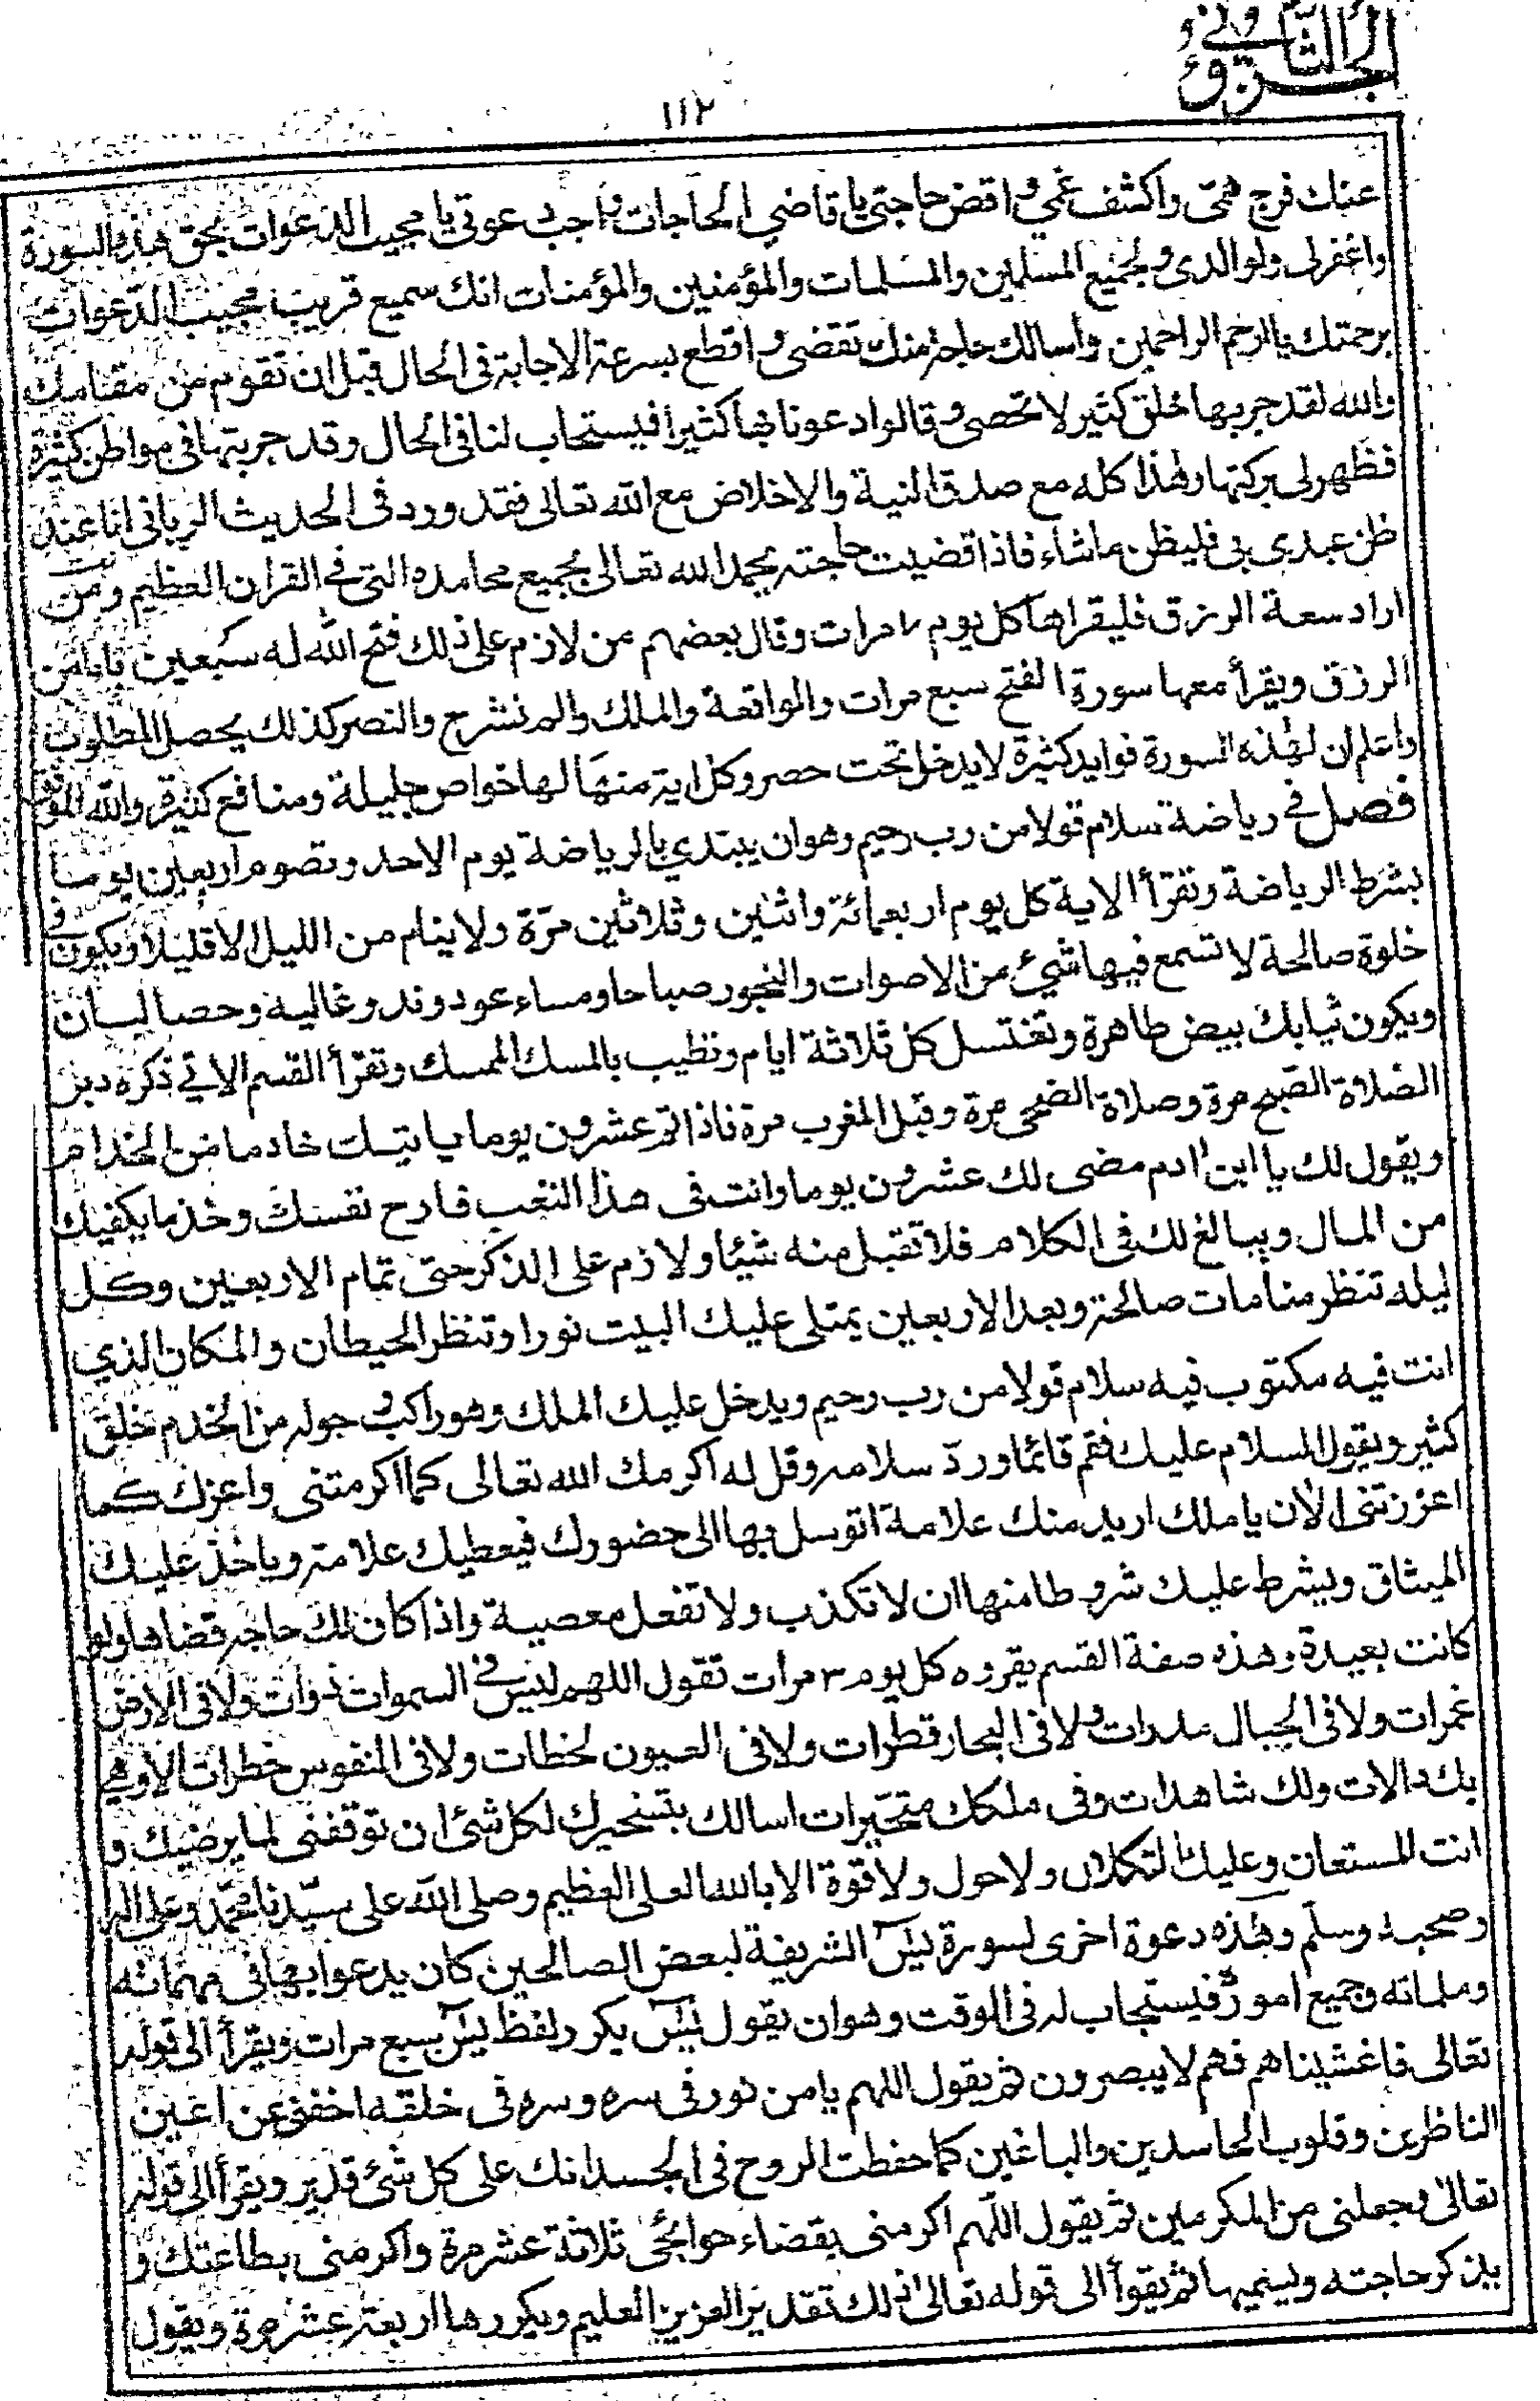 الجزؤ الثاني
١١٢
عنك فرج همى واكشف غمي واقض حاجتى يا قاضي الحاجات واجب دعوتي يا مجيب الدعوات بحق هذه السورة
واغفرلى ولوالدى ولجميع المسلمين والمسلمات والمؤمنين والمؤمنات انك سميع قريب مجيب الدعوات
برحمتك يا ارحم الراحمين واسالك حاجة منك تقضى واقطع بسرعة الاجابة فى الحال قبل ان تقوم من مقامك
والله لقد جربها خلق كثير لا تحصى وقالوا دعونا بها كثيرا فيستجاب لنا فى الحال وقد جربتها فى مواطن كثيرة
فظهرلى بركتها وهذا كله مع صدق النية والاخلاص مع الله تعالى فقد ورد فى الحديث الربانى انا عند
ظن عبدى بى فليظن ما شاء فاذا قضيت حاجته يحمد الله تعالى بجميع محامده التى في القران العظيم ومن
اراد سعة الرزق فليقراها كل يوم ٧ مرات وقال بعضهم من لازم على ذلك فتح الله له سبعين بابا من
الرزق ويقرأ معها سورة الفتح سبع مرات والواقعة والملك والم نشرح والنصر كذلك يحصل المطلوب
واعلم ان لهذه السورة فوايد كثيرة لا يدخل تحت حصر وكل اية منها لها خواص جليلة ومنافع كثيرة والله الموفق
فصل في رياضة سلام قولا من رب رحيم وهو ان يبتدي بالرياضة يوم الاحد وتصوم اربعين يوما
بشرط الرياضة وتقرأ الاية كل يوم اربعمائة واثنين وثلاثين مرّة ولا ينام من الليل الا قليلا ويكون فى
خلوة صالحة لا تسمع فيها شيئ من الاصوات والبخور صباحا ومساء عود وند وغالية وحصا لبان
ويكون ثيابك بيض طاهرة وتغتسل كل ثلاثة ايام وتطيب بالمسك الممسك وتقرأ القسم الاتي ذكره دبر
الصلاة الصبح مرة وصلاة الضحى مرة وقبل المغرب مرة فاذا تم عشرون يوما يا تيك خادما من الخدام
ويقول لك يا ابن ادم مضى لك عشرون يوما وانت فى هذا التعب فارح نفسك وخذ ما يكفيك
من المال ويبالغ لك فى الكلام فلا تقبل منه شيئا ولازم على الذكر حتى تمام الاربعين وكل
ليله تنظر منامات صالحة وبعد الاربعين يمتلى عليك البيت نورا وتنظر الحيطان والمكان الذي
انت فيه مكتوب فيه سلام قولا من رب رحيم ويدخل عليك الملك وهو راكب وحوله من الخدم خلق
كثير ويقول السلام عليك فقم قائما ورد سلامه وقل له اكرمك الله تعالى كما اكرمتنى واعزك كما
اعززتنى الان يا ملك اريد منك علامة اتوسل بها الى حضورك فيعطيك علامة وياخذ عليك
الميثاق ويشرط عليك شروطا منها ان لا تكذب ولا تفعل معصية واذا كان لك حاجه قضاها ولو
كانت بعيدة وهذه صفة القسم يقروه كل يوم ٣ مرات تقول اللهم ليس في السموات ذوات ولا فى الارض
غمرات ولا فى الجبال مدرات ولا فى البحار قطرات ولا فى العيون لحظات ولا فى النفوس خطرات الا وهي
بك دالات ولك شاهدات وفى ملكك متحيرات اسالك بتسخيرك لكل شئ ان توقفنى لما يرضيك و
انت المستعان وعليك التكلان ولا حول ولا قوة الا بالله العلى العظيم وصلى الله على سيّدنا محمد وعلى اله
وصحبه وسلّم وهذه دعوة اخرى لسورة يس الشريفة لبعض الصالحين كان يدعوا بها فى مهماته
وملماته وجميع اموره فيستجاب له فى الوقت وهو ان يقول يس يكرر لفظ يس سبع مرات ويقرأ الى قوله
تعالى فاغشيناهم فهم لا يبصرون ثم يقول اللهم يا من نوره فى سره وسره فى خلقه اخفنى عن اعين
الناظرين وقلوب الحاسدين والباغين كما حفظت الروح فى الجسد انك على كل شئ قدير ويقرأ الى قوله
تعالى وجعلنى من المكرمين ثم يقول اللّهم اكرمنى بقضاء حوائجى ثلاثة عشر مرة واكرمنى بطاعتك و
يذكر حاجته ويسميها ثم يقرأ الى قوله تعالى ذلك تقدير العزيز العليم ويكررها اربعة عشر مرة ويقول